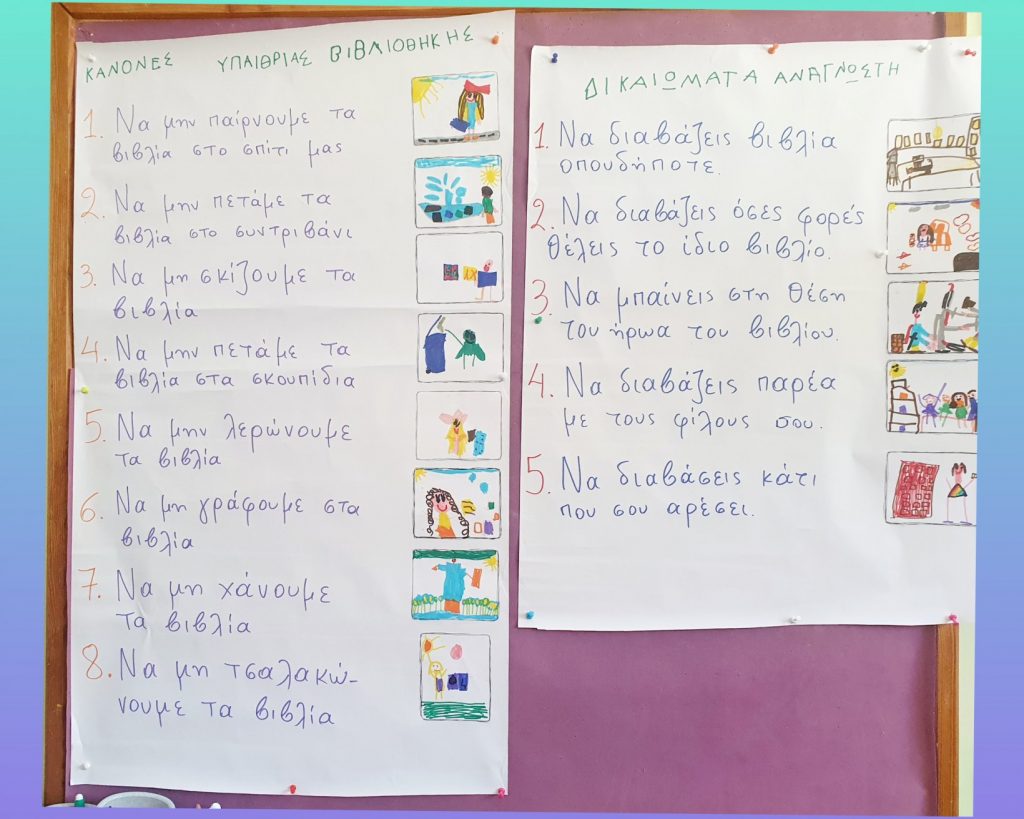 ΚΑΝΟΝΕΣ ΥΠΑΙΘΡΙΑΣ ΒΙΒΛΙΟΘΗΚΗΣ
1. Να μην παίρνουμε τα
βιβλία στο σπίτι μας
2. Να μην πετάμε τα
βιβλία στο συντριβάνι
3. Να μη σκίζουμε τα
βιβλία
4. Να μην πετάμε τα
βιβλία στα σκουπίδια
5. Να μην λερώνουμε
τα βιβλία
6. Να μη γράφουμε στα
βιβλία
7. Να μη χάνουμε
τα βιβλία
8. Να μη τσαλακώ-
νουμε τα βιβλία
ΔΙΚΑΙΩΜΑΤΑ ΑΝΑΓΝΩΣΤΗ
1. Να διαβάζεις βιβλία
οπουδήποτε.
2. Να διαβάζεις όσες φορές
θέλεις το ίδιο βιβλίο.
3. Να μπαίνεις στη θέση
του ήρωα του βιβλίου.
4. Να διαβάζεις παρέα
με τους φίλους σου.
5. Να διαβάσεις κάτι
που σου αρέσει.